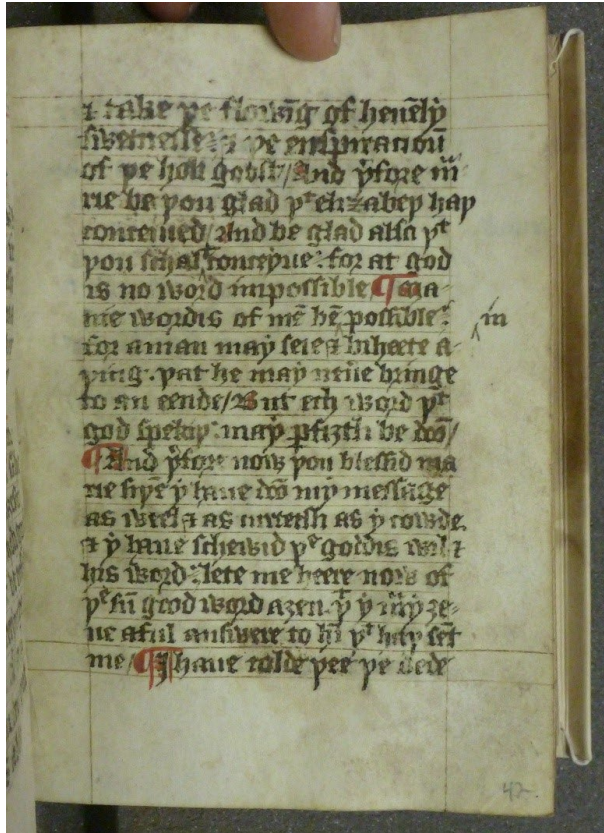 ⁊ take þe flowīg of heuēly
swetnesse ⁊ þe enspiracioū
of þe holi goost / And þ̉fore m̄
rie be þou glad þᵗ elizabeþ haþ
conceiued / And be glad also þᵗ
þou schalt conceyue : for at god
is no word impossible ¶ Ma
nie wordis of mē bē possible :
in
for a man may seie ⁊ biheete a
þing . þat he may neuͤ bringe
to an eende / But ech word þᵗ
god spekiþ : may ꝑfiȝtli be doō /
¶ And þ̉fore now þou blessid ma
rie siþe y haue doō my message
as weel ⁊ as meteli as y cowde.
⁊ y haue schewid þᵉ goddis wil ⁊
his word : lete me heere now of
þᵉ sū good word aȝen þᵗ y may ȝe
ue a ful answere to hī þᵗ haþ sēt
me / ¶ I haue tolde þee þe dede
42